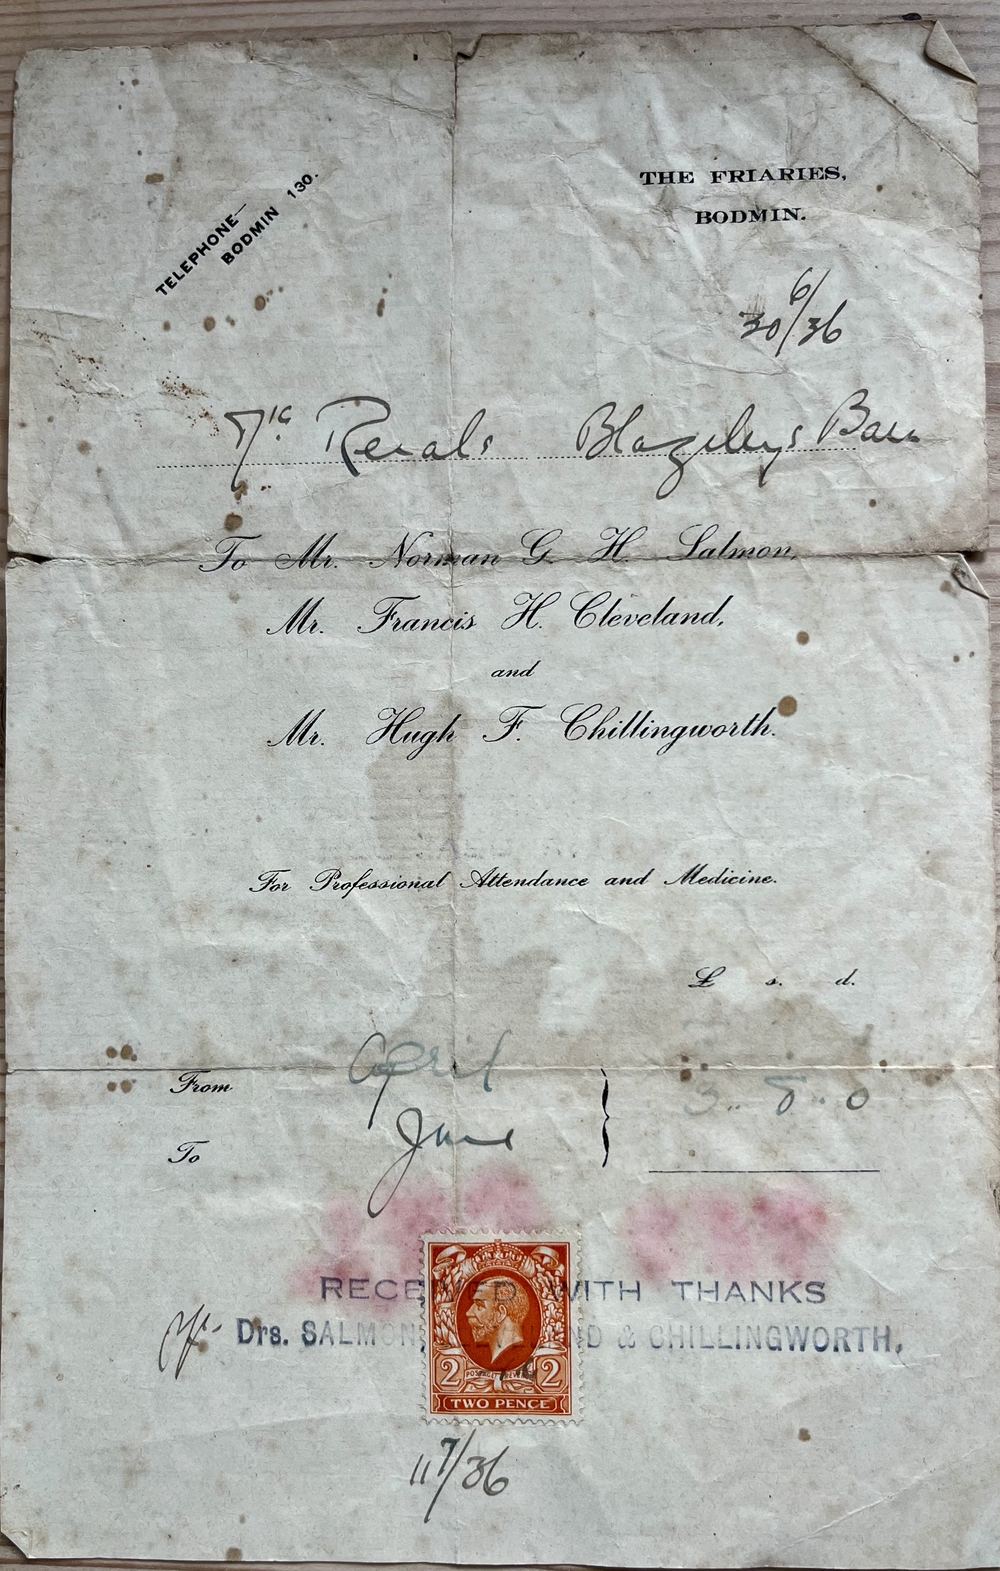 TELEPHONE—
BODMIN 130.
THE FRIARIES,
BODMIN.
30/6/36
Renals Blazeleys
To Mr. Norman G. H. Salmon,
Mr. Francis H. Cleveland,
and
Mr. Hugh F. Chillingworth.
For Professional Attendance and Medicine.
£ s. d.
From April
3 .. 8 .. 0
To June
RECEIVED WITH THANKS
Drs. SALMON, CLEVELAND & CHILLINGWORTH,
2 POSTAGE REVENUE 2
TWO PENCE
11/7/36